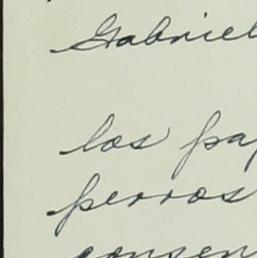 Gabriel
los pa
perros
consen